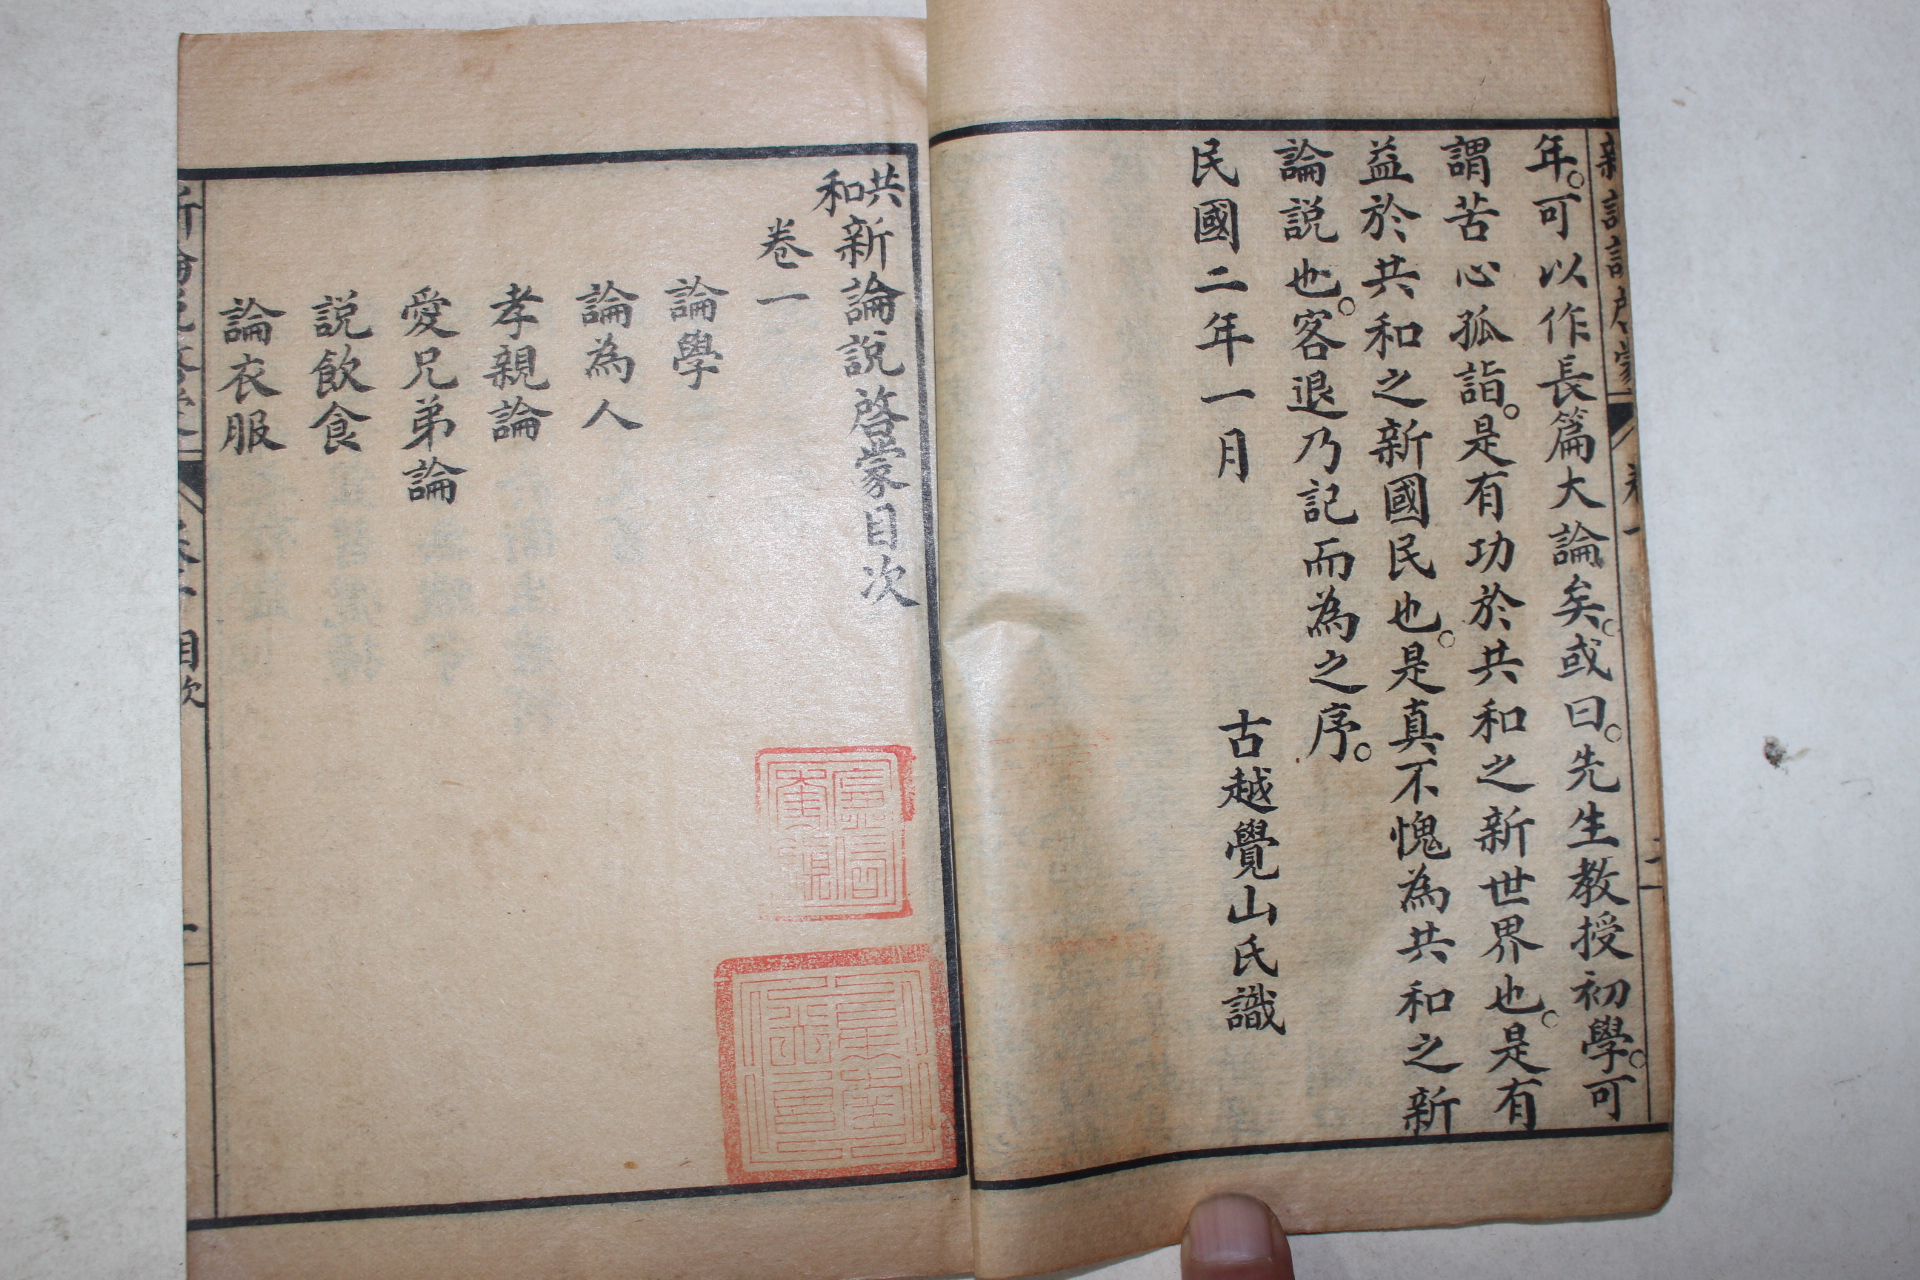 年。可以作長篇大論矣。或曰。先生教授初學。可
謂苦心孤詣。是有功於共和之新世界也。是有
益於共和之新國民也。是真不愧為共和之新
論説也。客退乃記而為之序。
民國二年一月
古越覺山氏識
共和新論說啓蒙目次
卷一
論學
論為人
孝親論
愛兄弟論
説飲食
論衣服